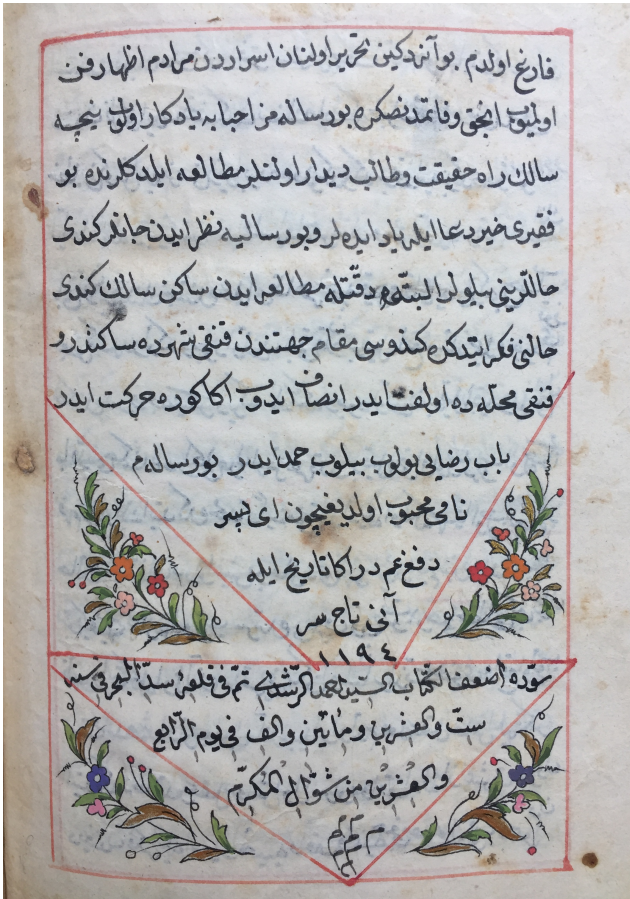 فارغ اولدم بو آنزدكين تحرير اولنان اسراردن مرادم اظهار فن
اولميوب انجق وفاتمدنصكره بو رساله مز احبابه يادكار اولوب نيچه
سالك راه حقيقت وطالب ديدار اولنلر مطالعه ايلدكلرنده بو
فقيرى خير دعا ايله ياد ايده لر وبو رساليه نظر ايدن جانلر كندى
حاللريني بيلورلر البته دقتله مطالعه ايدن ساكن سالك كندى
حالنى فكر ايتدكده كندوسى مقام جهتندن قنقى شهرده ساكندر و
قنقى محله ده اولفت ايدر انصاف ايدوب اكا كوره حركت ايدر
باب رضايى بولوب بيلوب حمد ايدر بو رساله م
نامى محبوب اولديغيچون اى پسر
دفع غم در اكا تاريخ ايله
آنى تاج سر
١١٩٤
سوّده اضعف الكتّاب السيّد احمد الرّشدى تمّ فى قلعۀ سدّ البحر فى سنه
ستّ والعشرين ومائتين والف فى يوم الرّابع
والعشرين من شوّال المكرّم
م م م